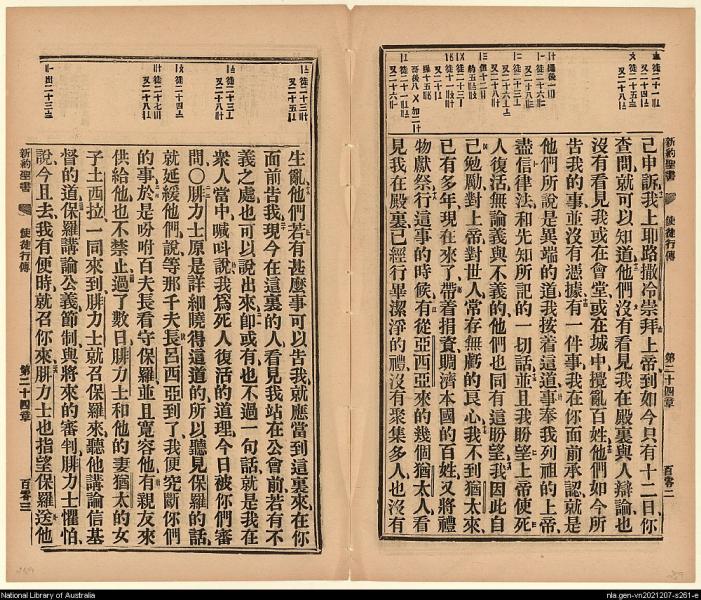 新約聖書
使徒行傳
第二十四章
百零二
己申訴我上耶路撒冷崇拜上帝到如今只有十二日你
查問就可以知道他們沒有看見我在殿裏與人辯論也
沒有看見我或在會堂或在城中攪亂百姓他們如今所
告我的事並沒有憑據有一件事我在你面前承認就是
他們所說是異端的道我按着這道事奉我列祖的上帝
盡信律法和先知所記的一切話並且我盼望上帝使死
人復活無論義與不義的他們也同有這盼望我因此自
己勉勵對上帝對世人常存無虧的良心我不到猶太來
已有多年現在來了帶着捐資賙濟本國的百姓又將禮
物獻祭行這事的時候有從亞西亞來的幾個猶太人看
見我在殿裏已經行畢潔淨的禮沒有聚集多人也沒有
生亂他們若有甚麼事可以告我就應當到這裏來在你
面前告我現今在這裏的人看見我站在公會前若有不
義之處也可以說出來卽或有也不過一句話就是我在
衆人當中喊呌說我爲死人復活的道理今日被你們審
問○腓力士原是詳細曉得這道的所以聽見保羅的話
就延緩他們說等那千夫長呂西亞到了我便究斷你們
的事於是吩咐百夫長看守保羅並且寬容他有親友來
供給他也不禁止過了數日腓力士和他的妻猶太的女
子土西拉一同來到腓力士就召保羅來聽他講論信基
督的道保羅講論公義節制與將來的審判腓力士懼怕
說今且去我有便時就召你來腓力士也指望保羅送他
新約聖書
使徒行傳
第二十四章
百零三
National Library of Australia
nla.gen-vn2021207-s261-e